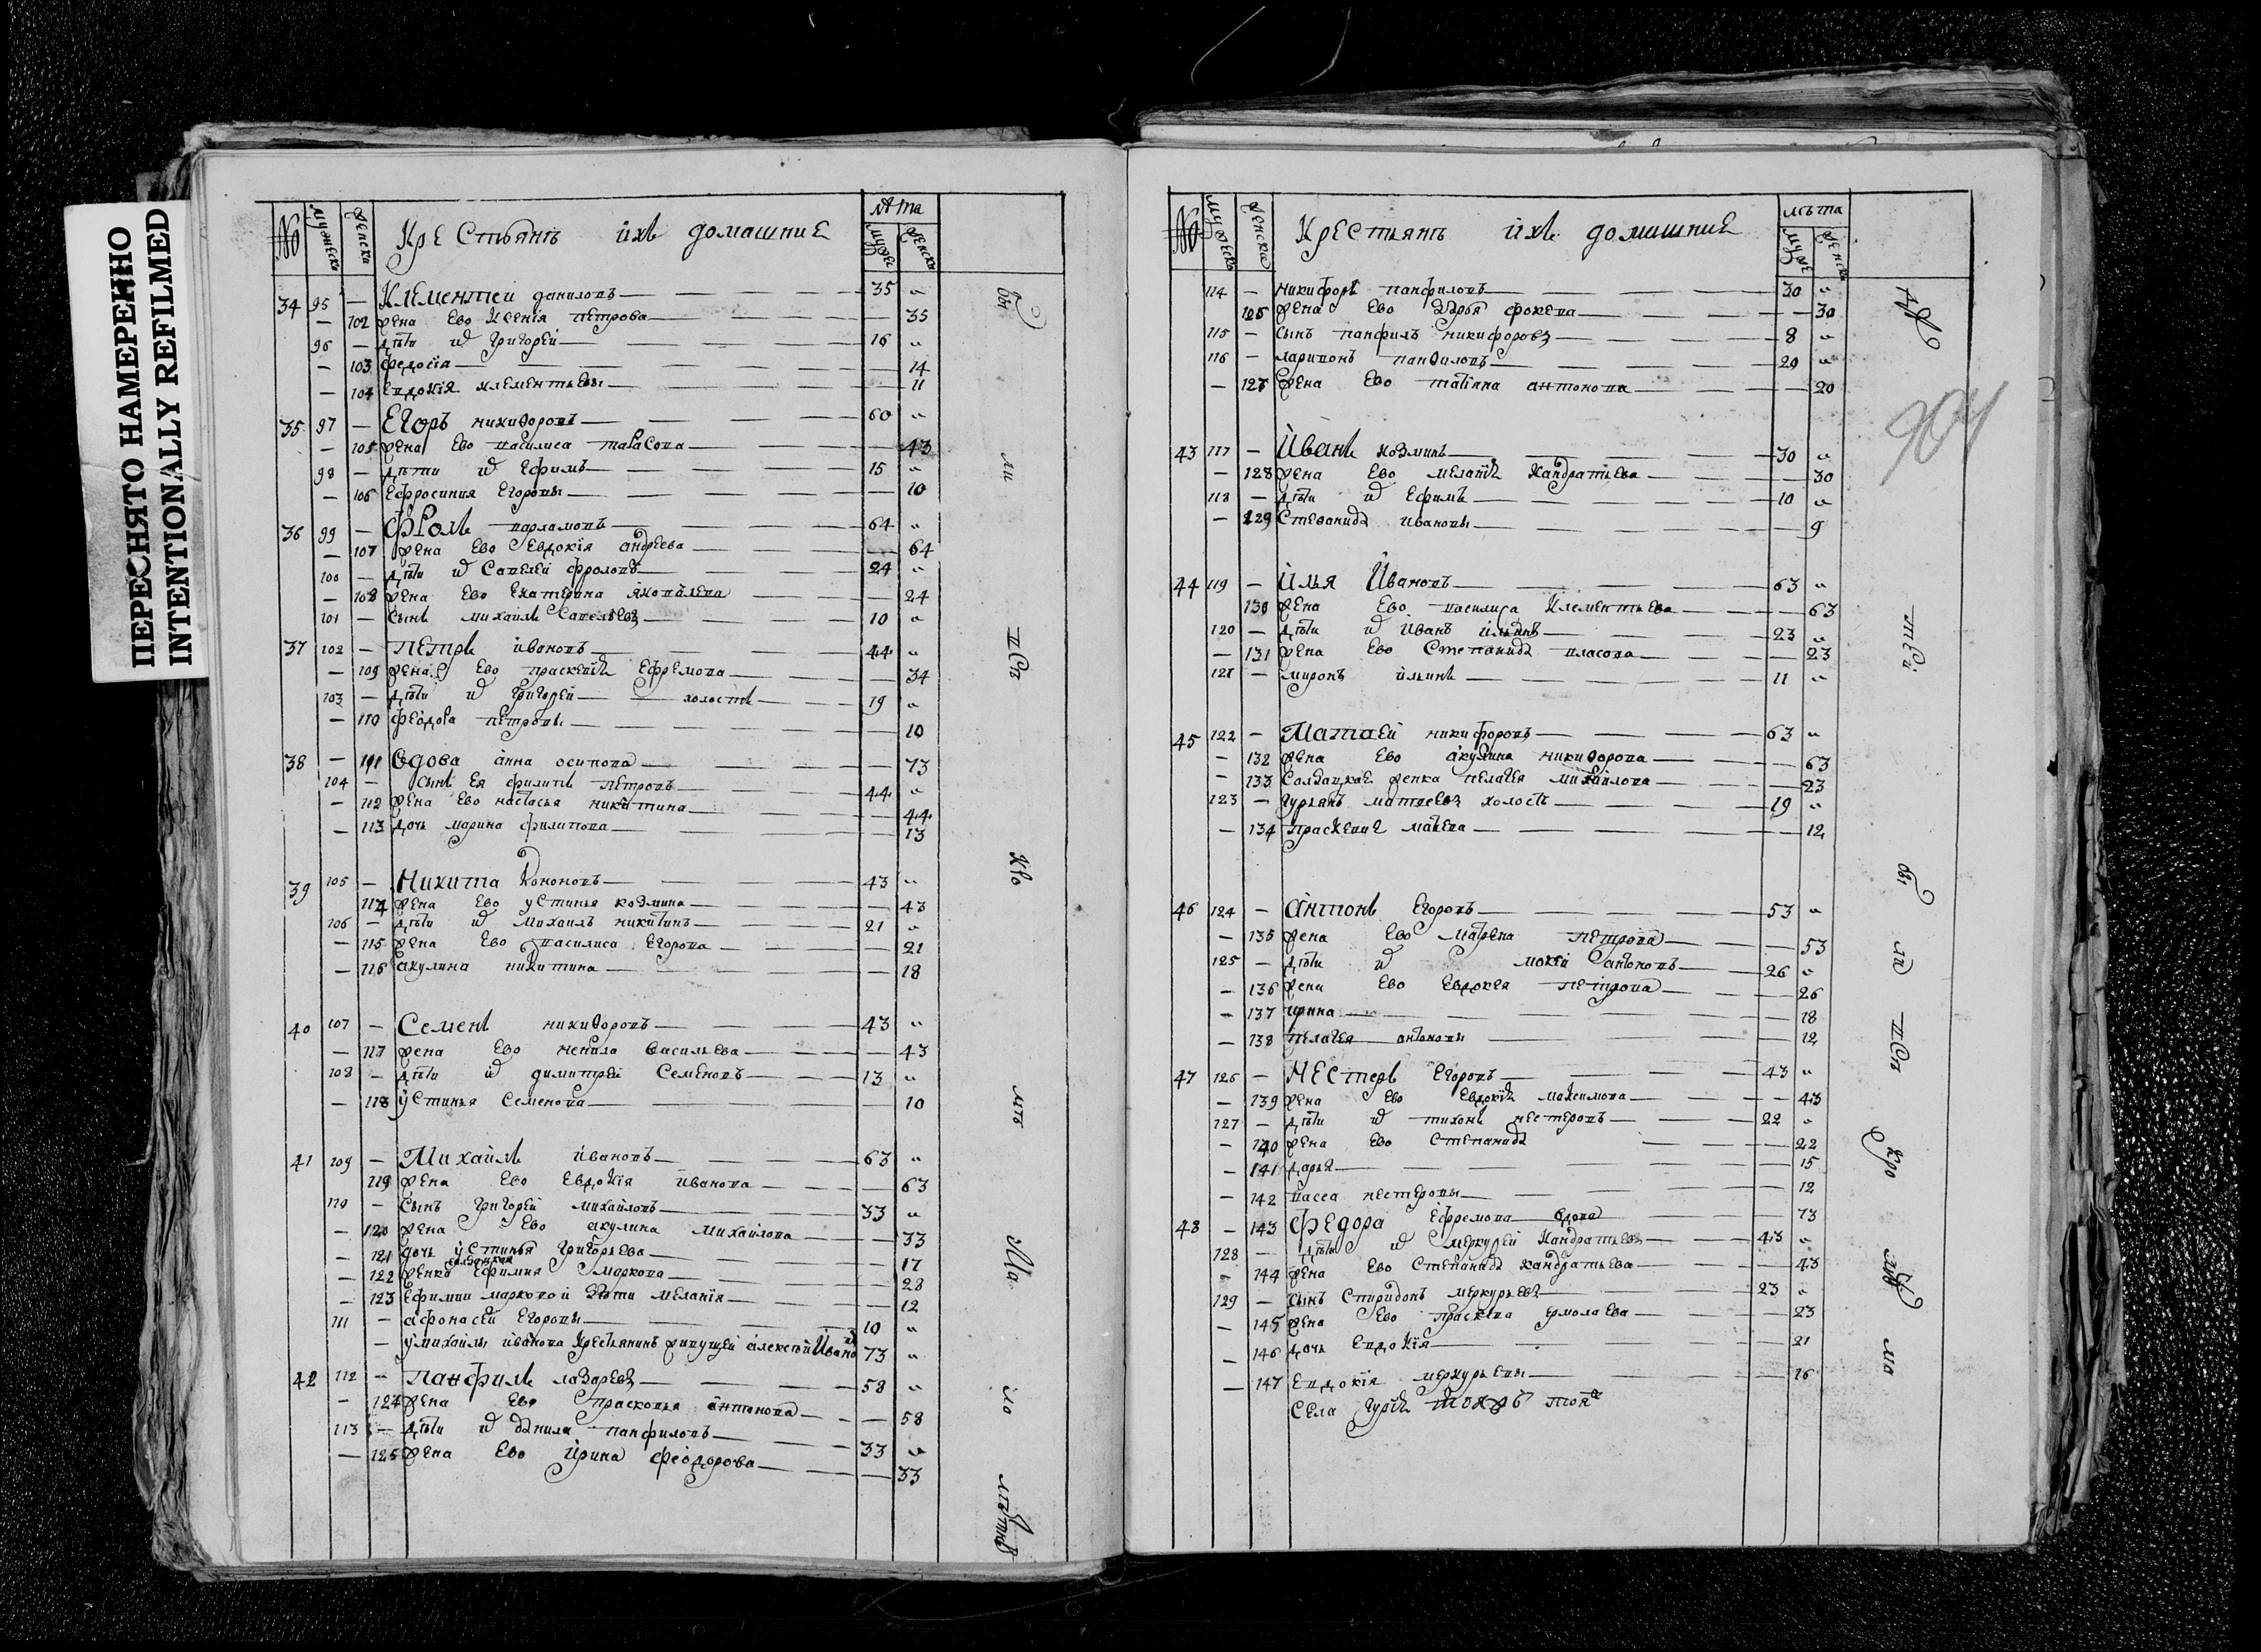 ПЕРЕСНЯТО НАМЕРЕННО
INTENTIONALLY REFILMED
№ мужеска женска Крестьянъ ихъ домашние лѣта муже женска
34 95 — Клементеи даниловъ 35 "
— 102 жена Ево Ксенїя петрова — 35
96 — дѣти ѡ Григорей 16 "
— 103 Федосїя — 14
— 104 Евдокїя клементьевы — 11
35 97 — Егоръ никиѳоровъ 60 "
— 105 жена Ево василиса тарасова — 43
98 — дѣти ѡ Ефимъ 15 "
— 106 Ефросиния Егоровы — 10
36 99 — Фролъ варламовъ 64 "
— 107 жена Ево Евдокїя андреева — 64
100 — дѣти ѡ Савелей фроловъ 24 "
— 108 жена Ево Екатерина яковлева — 24
101 — сынъ михаилъ Савельевъ 10 "
37 102 — Петръ ивановъ 44 "
— 109 жена Ево прасковїя Ефремова — 34
103 — дѣти ѡ Григорей холостъ 19 "
— 110 феодора петровы — 10
38 — 111 вдова анна осипова — 73
104 — сынъ ея филипъ петровъ 44 "
— 112 жена Ево настасья никитина — 44
— 113 дочь марина филипова — 13
39 105 — Никита Кононовъ 43 "
114 жена Ево устинья козмина — 43
106 — дѣти ѡ михаилъ никитинъ 21 "
— 115 жена Ево василиса Егорова — 21
— 116 акулина никитина — 18
40 107 — Семенъ никиѳоровъ 43 "
— 117 жена Ево ненила васильева — 43
108 — дѣти ѡ димитрей Семеновъ 13 "
— 118 устинья Семенова — 10
41 109 — Михаилъ ивановъ 63 "
119 жена Ево Евдокїя иванова — 63
110 — сынъ григорей михайловъ 33 "
— 120 жена Ево акулина михайлова — 33
— 121 дочь устинья григорьева — 17
— 122 женка Ефимия маркова — 28
— 123 Ефимии марковой дѣти меланїя — 12
111 — афонасей Егоровы 10 "
— у михайлы иванова крестьянинъ живущей алексѣй Ивано 73 "
42 112 — Панфилъ лазаревъ 58 "
— 124 жена Ево прасковья антонова — 58
113 — дѣти ѡ данила панфиловъ 33 "
— 125 жена Ево ирина феодорова — 33
№ мужеска женска Крестьянъ ихъ домашние лѣта муже женска
114 — никифоръ панфиловъ 30 "
126 жена Ево дарья фокева — 30
115 — сынъ панфилъ никифоровъ 8 "
116 — ларивонъ панѳиловъ 20 "
— 127 жена Ево татїяна антонова — 20
43 117 — Иванъ козминъ 30 "
— 128 жена Ево меланїя Кандратьева — 30
118 — дѣти ѡ Ефимъ 10 "
— 129 Стеѳанида ивановы — 9
44 119 — Илья Ивановъ 63 "
130 жена Ево василиса Клементьева — 63
120 — дѣти ѡ иванъ ильинъ 23 "
— 131 жена Ево Степанида власова — 23
121 — миронъ ильинъ 11 "
45 122 — Матѳей никифоровъ 63 "
— 132 жена Ево акулина никиѳорова — 63
— 133 Салдацкая женка пелагея михайлова — 23
123 — гурьянъ матвеевъ холостъ 19 "
— 134 — 12
46 124 — антонъ Егоровъ 53 "
— 135 жена Ево матрена петрова — 53
125 — дѣти ѡ мокей антоновъ 26 "
— 136 жена Ево Евдокея петрова — 26
— 137 ирина — 18
— 138 пелагея антоновы — 12
47 126 — Нестеръ Егоровъ 43 "
— 139 жена Ево Евдокїя максимова — 43
127 — дѣти ѡ тихонъ нестеровъ 22 "
— 140 жена Ево Степанида — 22
— 141 дарья — 15
— 142 васса нестеровы — 12
48 — 143 Федора Ефремова вдова 73
128 — дѣти ѡ меркурей Кандратьевъ 43 "
144 жена Ево Степанида кандратьева — 43
129 — сынъ Спиридонъ меркурьевъ 23 "
— 145 жена Ево Ермолаева — 23
— 146 дочь Евдокїя — 21
— 147 Евдокїя меркурьевы — 16
Села